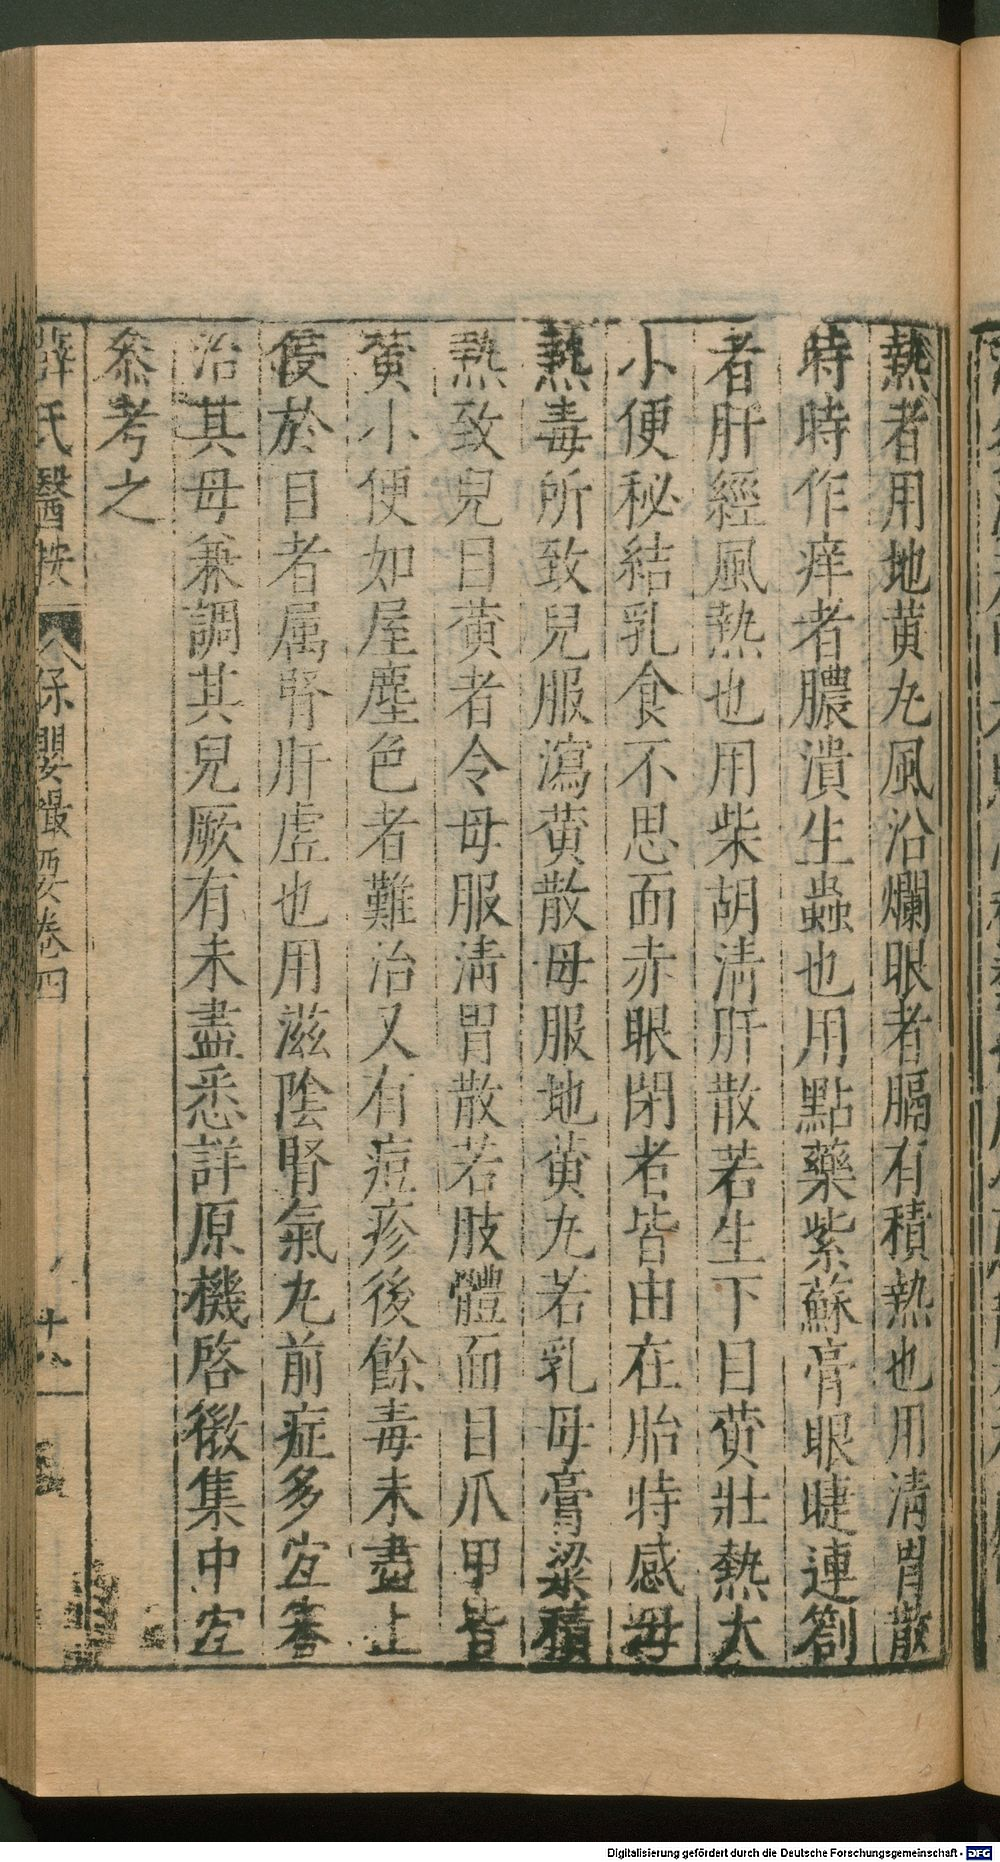 熱者用地黄丸風沿爛眼者膈有積熱也用清胃散
時時作痒者膿潰生蟲也用點藥紫蘇膏眼睫連劄
者肝經風熱也用柴胡清肝散若生下目黄壯熱大
小便秘結乳食不思面赤眼閉者皆由在胎時感母
熱毒所致兒服瀉黄散母服地黄丸若乳母膏粱積
熱致兒目黄者令母服清胃散若肢體面目爪甲皆
黄小便如屋塵色者難治又有痘疹後餘毒未盡上
侵於目者属腎肝虚也用滋陰腎氣丸前症多宜審
治其母兼調其兒厥有未盡悉詳原機啓微集中宜
叅考之
薛氏醫按 保嬰撮要卷四 十八
Digitalisierung gefördert durch die Deutsche Forschungsgemeinschaft - DFG